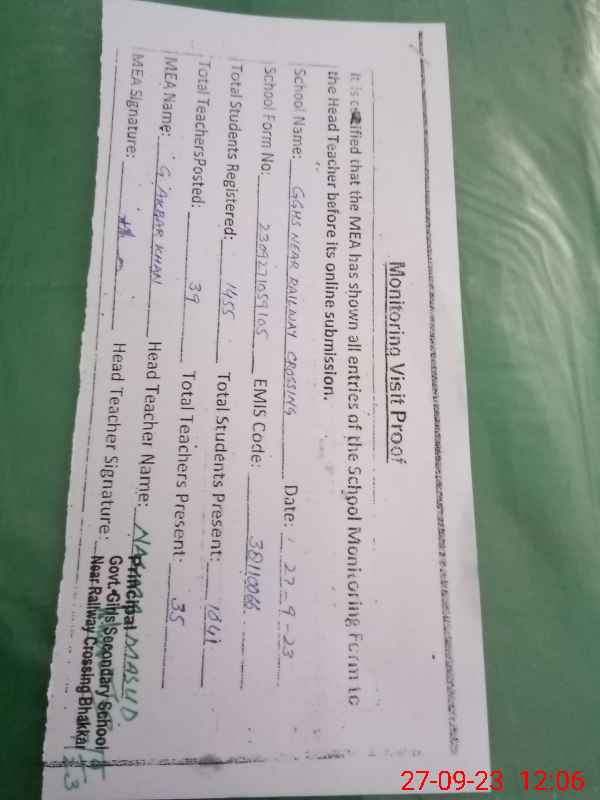 Monitoring Visit Proof
It is certified that the MEA has shown all entries of the School Monitoring Form to
the Head Teacher before its online submission.
School Name: GGHS NEAR RAILWAY CROSSING Date: 27-9-23
School Form No: 2309271059105 EMIS Code: 38110066
Total Students Registered: 1455 Total Students Present: 1041
Total Teachers Posted: 39 Total Teachers Present: 35
MEA Name: G. AKBAR KHAN Head Teacher Name: MASUD
MEA Signature: Head Teacher Signature:
Principal
Govt. Girls Secondary School
Near Railway Crossing Bhakkar
27-09-23 12:06